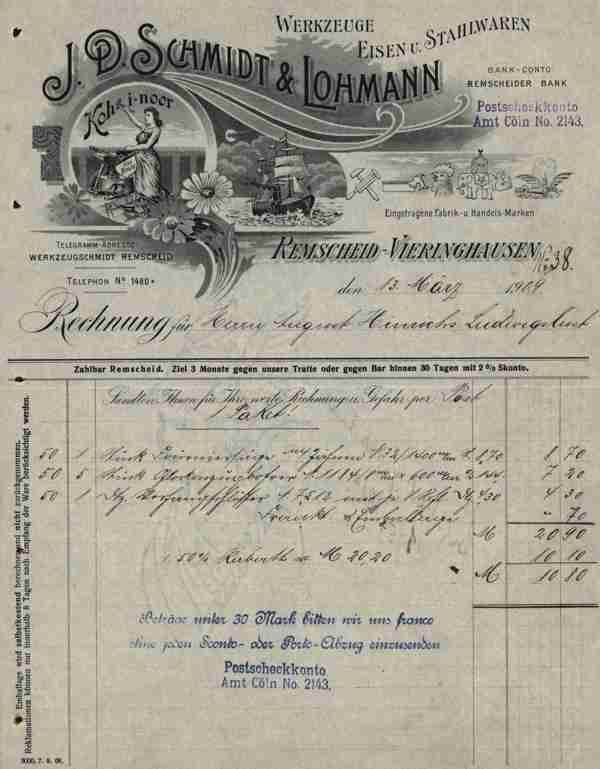 WERKZEUGE
EISEN U. STAHLWAREN
J. D. SCHMIDT & LOHMANN
BANK-CONTO
REMSCHEIDER BANK
Postscheckkonto
Amt Cöln No. 2143.
Koh-i-noor
Eingetragene Fabrik- u Handels-Marken
TELEGRAMM-ADRESSE:
WERKZEUGSCHMIDT REMSCHEID
TELEPHON No 1480
REMSCHEID-VIERINGHAUSEN
No 38.
den 13. März 1909
Rechnung für Herrn August Hinrichs Ludwigslust
Zahlbar Remscheid. Ziel 3 Monate gegen unsere Tratte oder gegen Bar binnen 30 Tagen mit 2% Skonto.
Sandten Ihnen für Ihre werte Rechnung u. Gefahr per Post
1 Paket:
50 1 Stück 1,70 1 70
50 5 Stück 1184/8 x 600 7 20
50 1 Dtz. 7512 4,30 4 30
" 70
M 20 90
50% M 20,20 10 10
M 10 80
Beträge unter 30 Mark bitten wir uns franco
ohne jeden Sconto- oder Porto-Abzug einzusenden
Postscheckkonto
Amt Cöln No. 2143.
Emballage wird selbstkostend berechnet und nicht zurückgenommen.
Reklamationen können nur innerhalb 8 Tagen nach Empfang der Ware berücksichtigt werden.